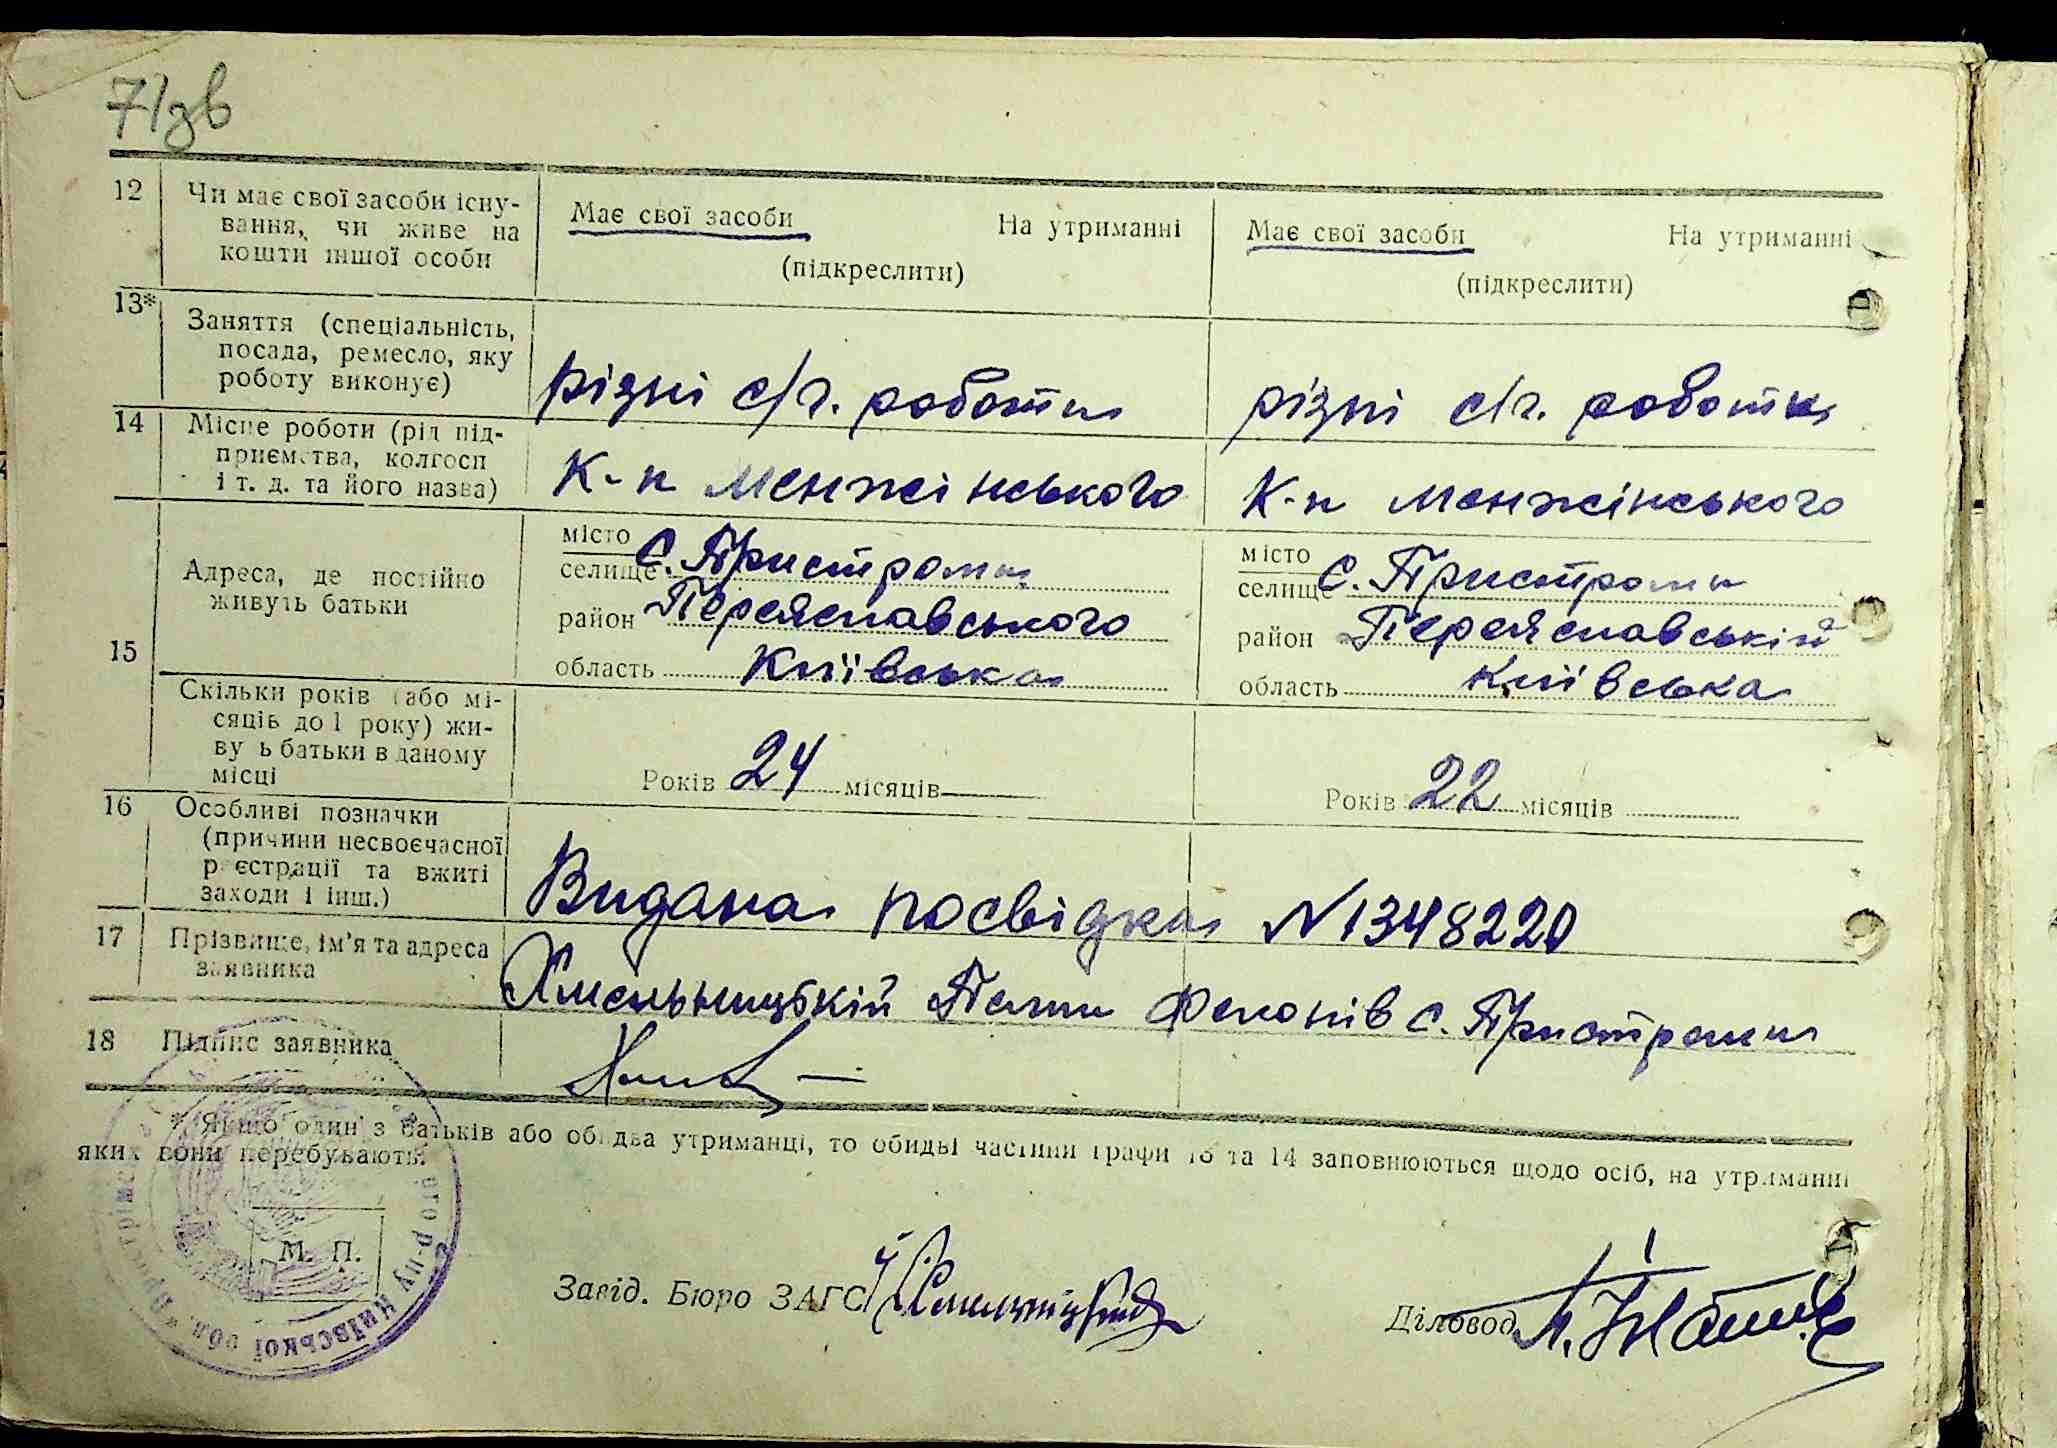 7/зв
12 Чи має свої засоби існу-
вання, чи живе на
кошти іншої особи
Має свої засоби На утриманні
(підкреслити)
Має свої засоби На утриманні
(підкреслити)
13* Заняття (спеціальність,
посада, ремесло, яку
роботу виконує)
різні с/г. роботи
різні с/г. роботи
14 Місце роботи (рід під-
приємства, колгосп
і т. д. та його назва)
К-п Менжінського
К-п Менжінського
15 Адреса, де постійно
живуть батьки
місто
селище с. Пристроми
район Переяславського
область Київська
місто
селище с. Пристроми
район Переяславській
область Київська
Скільки років (або мі-
сяців до 1 року) жи-
ву ь батьки в даному
місці
Років 24 місяців
Років 22 місяців
16 Особливі позначки
(причини несвоєчасної
реєстрації та вжиті
заходи і інш.)
Видана посвідка N1348220
17 Прізвище, ім'я та адреса
заявника
Хмельницькій с. Пристроми
18 Підпис заявника
* Якщо один з батьків або обидва утриманці, то обидві частини графи 13 та 14 заповнюються щодо осіб, на утриманні
яких вони перебувають.
М. П.
р-ну Київської обл.
Завід. Бюро ЗАГС
Діловод